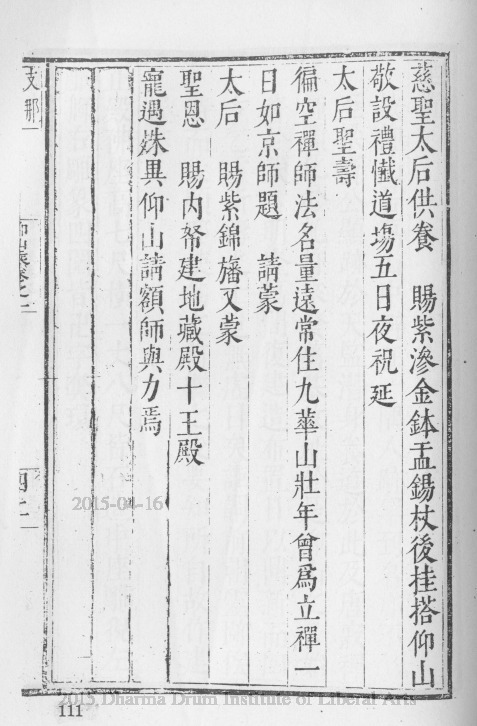 慈聖太后供養　賜紫滲金鉢盂錫杖後挂搭仰山
敬設禮懺道場五日夜祝延
太后聖壽
徧空禪師法名量遠常住九華山壯年曾爲立禪一
日如京師題　請蒙
太后　賜紫錦旛又蒙
聖恩　賜內帑建地藏殿十王殿
寵遇殊異仰山請額師與力焉
支那
2015-04-16
2015, Dharma Drum Institute of Liberal Arts
111